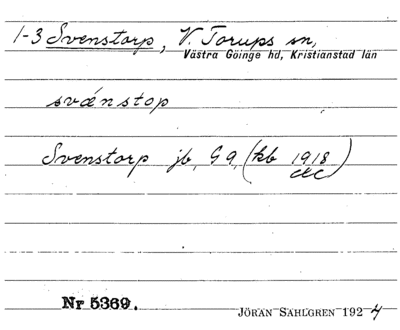 1-3 Svenstorp, V. Torups sn,
Västra Göinge hd, Kristianstad län
svǽnstop
Svenstorp jb, G 9, (kb 1918 etc)
Nr 5369.
JÖRAN SAHLGREN 1924